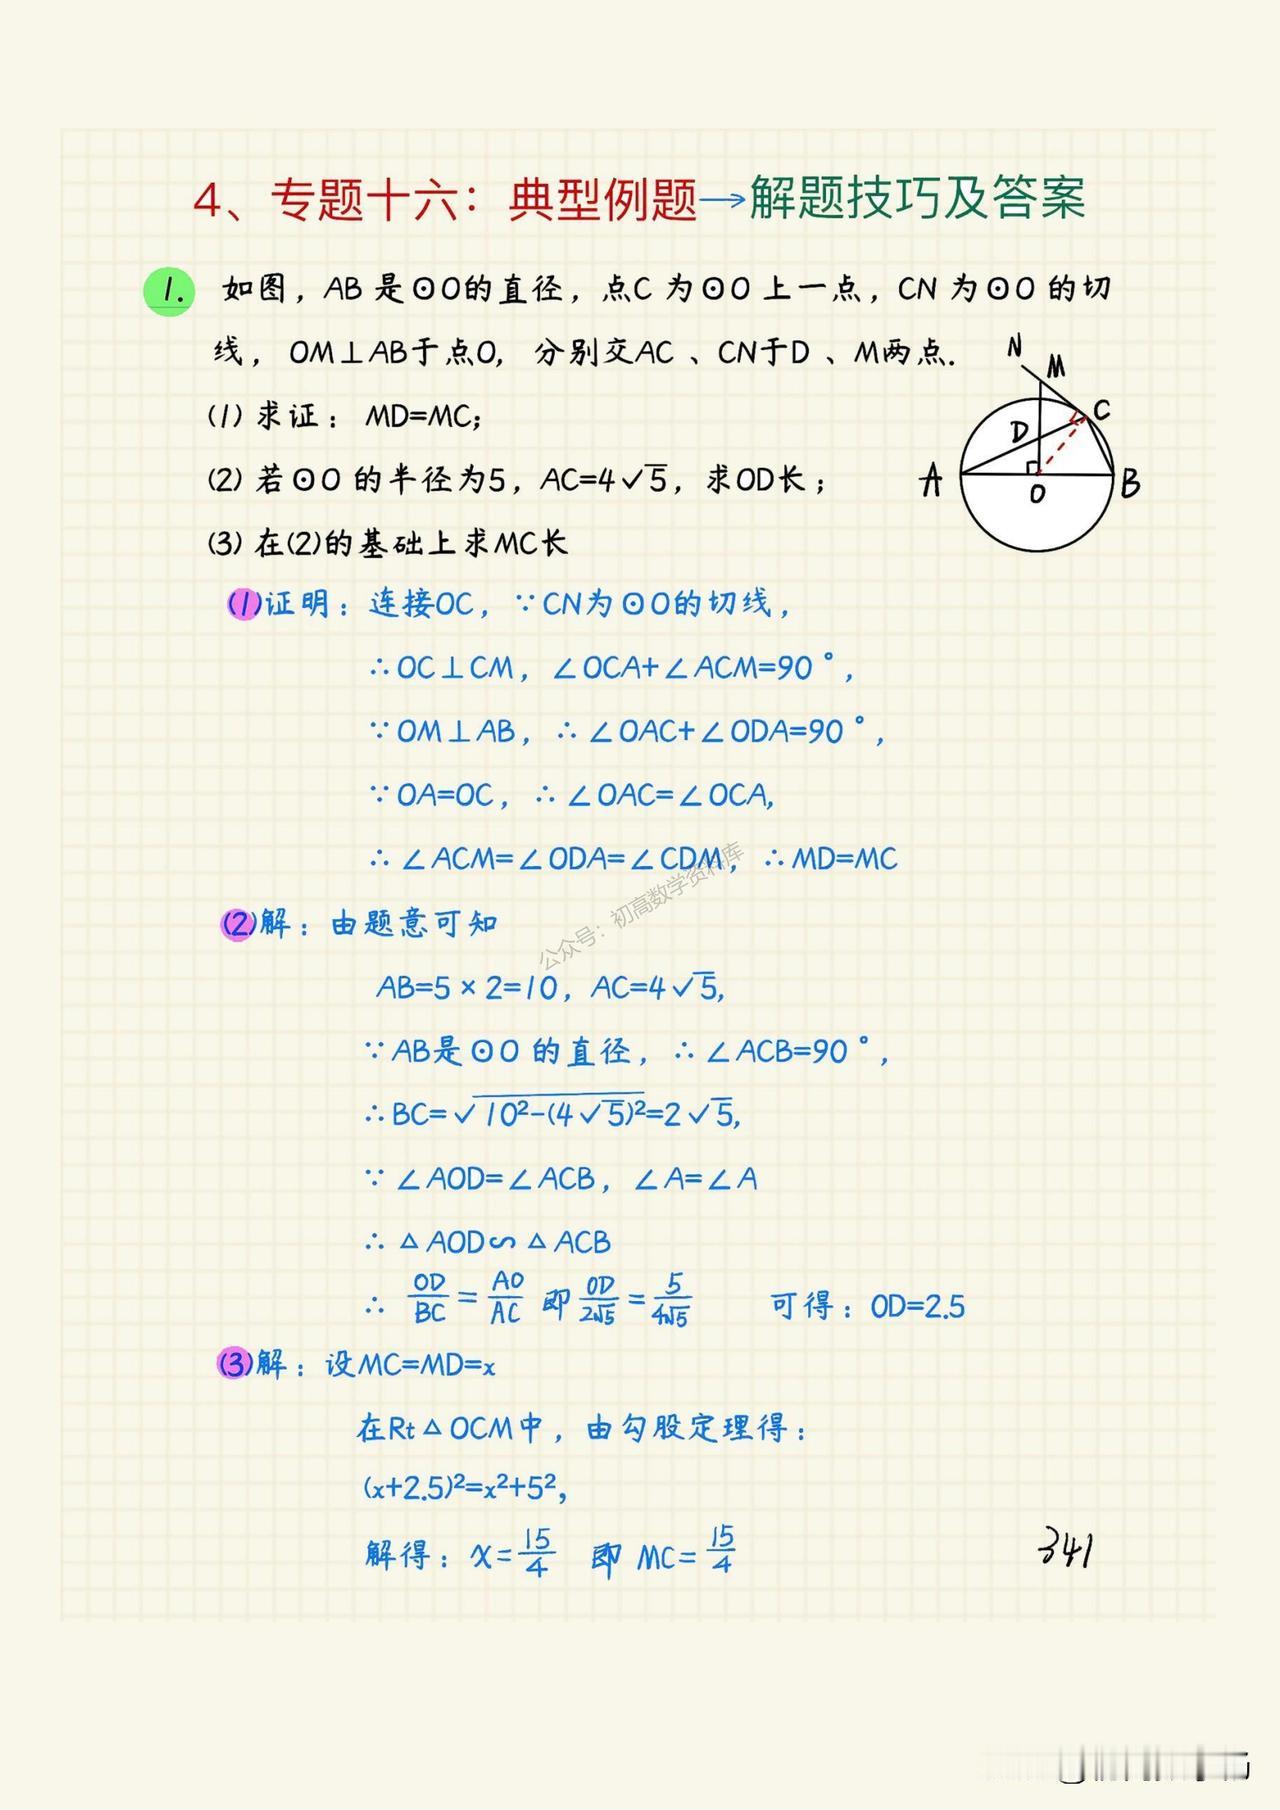 4、专题十六：典型例题→解题技巧及答案
1. 如图，AB 是⊙O的直径，点C 为⊙O 上一点，CN 为⊙O 的切
线，OM⊥AB于点O, 分别交AC 、CN于D 、M两点.
(1) 求证： MD=MC;
(2) 若⊙O 的半径为5，AC=4√5，求OD长；
(3) 在(2)的基础上求MC长
N
M
C
D
A
O
B
(1)证明：连接OC，∵CN为⊙O的切线，
∴OC⊥CM，∠OCA+∠ACM=90°，
∵OM⊥AB，∴∠OAC+∠ODA=90°，
∵OA=OC，∴∠OAC=∠OCA,
∴∠ACM=∠ODA=∠CDM，∴MD=MC
公众号：初高数学资料库
(2)解：由题意可知
AB=5×2=10，AC=4√5,
∵AB是⊙O 的直径，∴∠ACB=90°，
∴BC=√10²-(4√5)²=2√5,
∵∠AOD=∠ACB，∠A=∠A
∴△AOD∽△ACB
∴ OD/BC = AO/AC 即 OD/2√5 = 5/4√5 可得：OD=2.5
(3)解：设MC=MD=x
在Rt△OCM中，由勾股定理得：
(x+2.5)²=x²+5²,
解得：x=15/4 即 MC=15/4
341